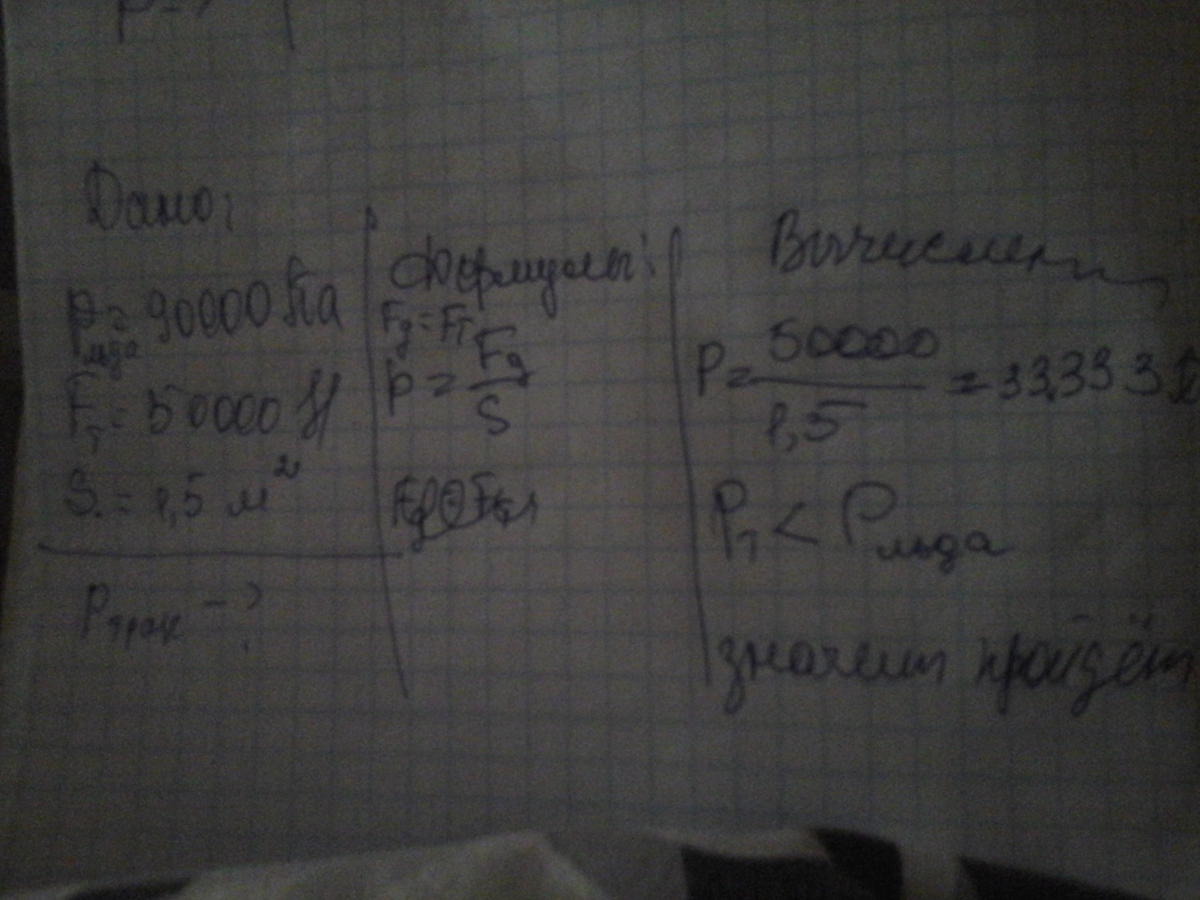 Дано:
P = 90000 Па
льда
Fт = 50000 Н
S = 1,5 м²
Pтрак - ?
Формулы:
Fд = Fт
p = Fд / S
Вычислени
P = 50000 / 1,5 = 33333
Pт < Pльда
значит пройдёт